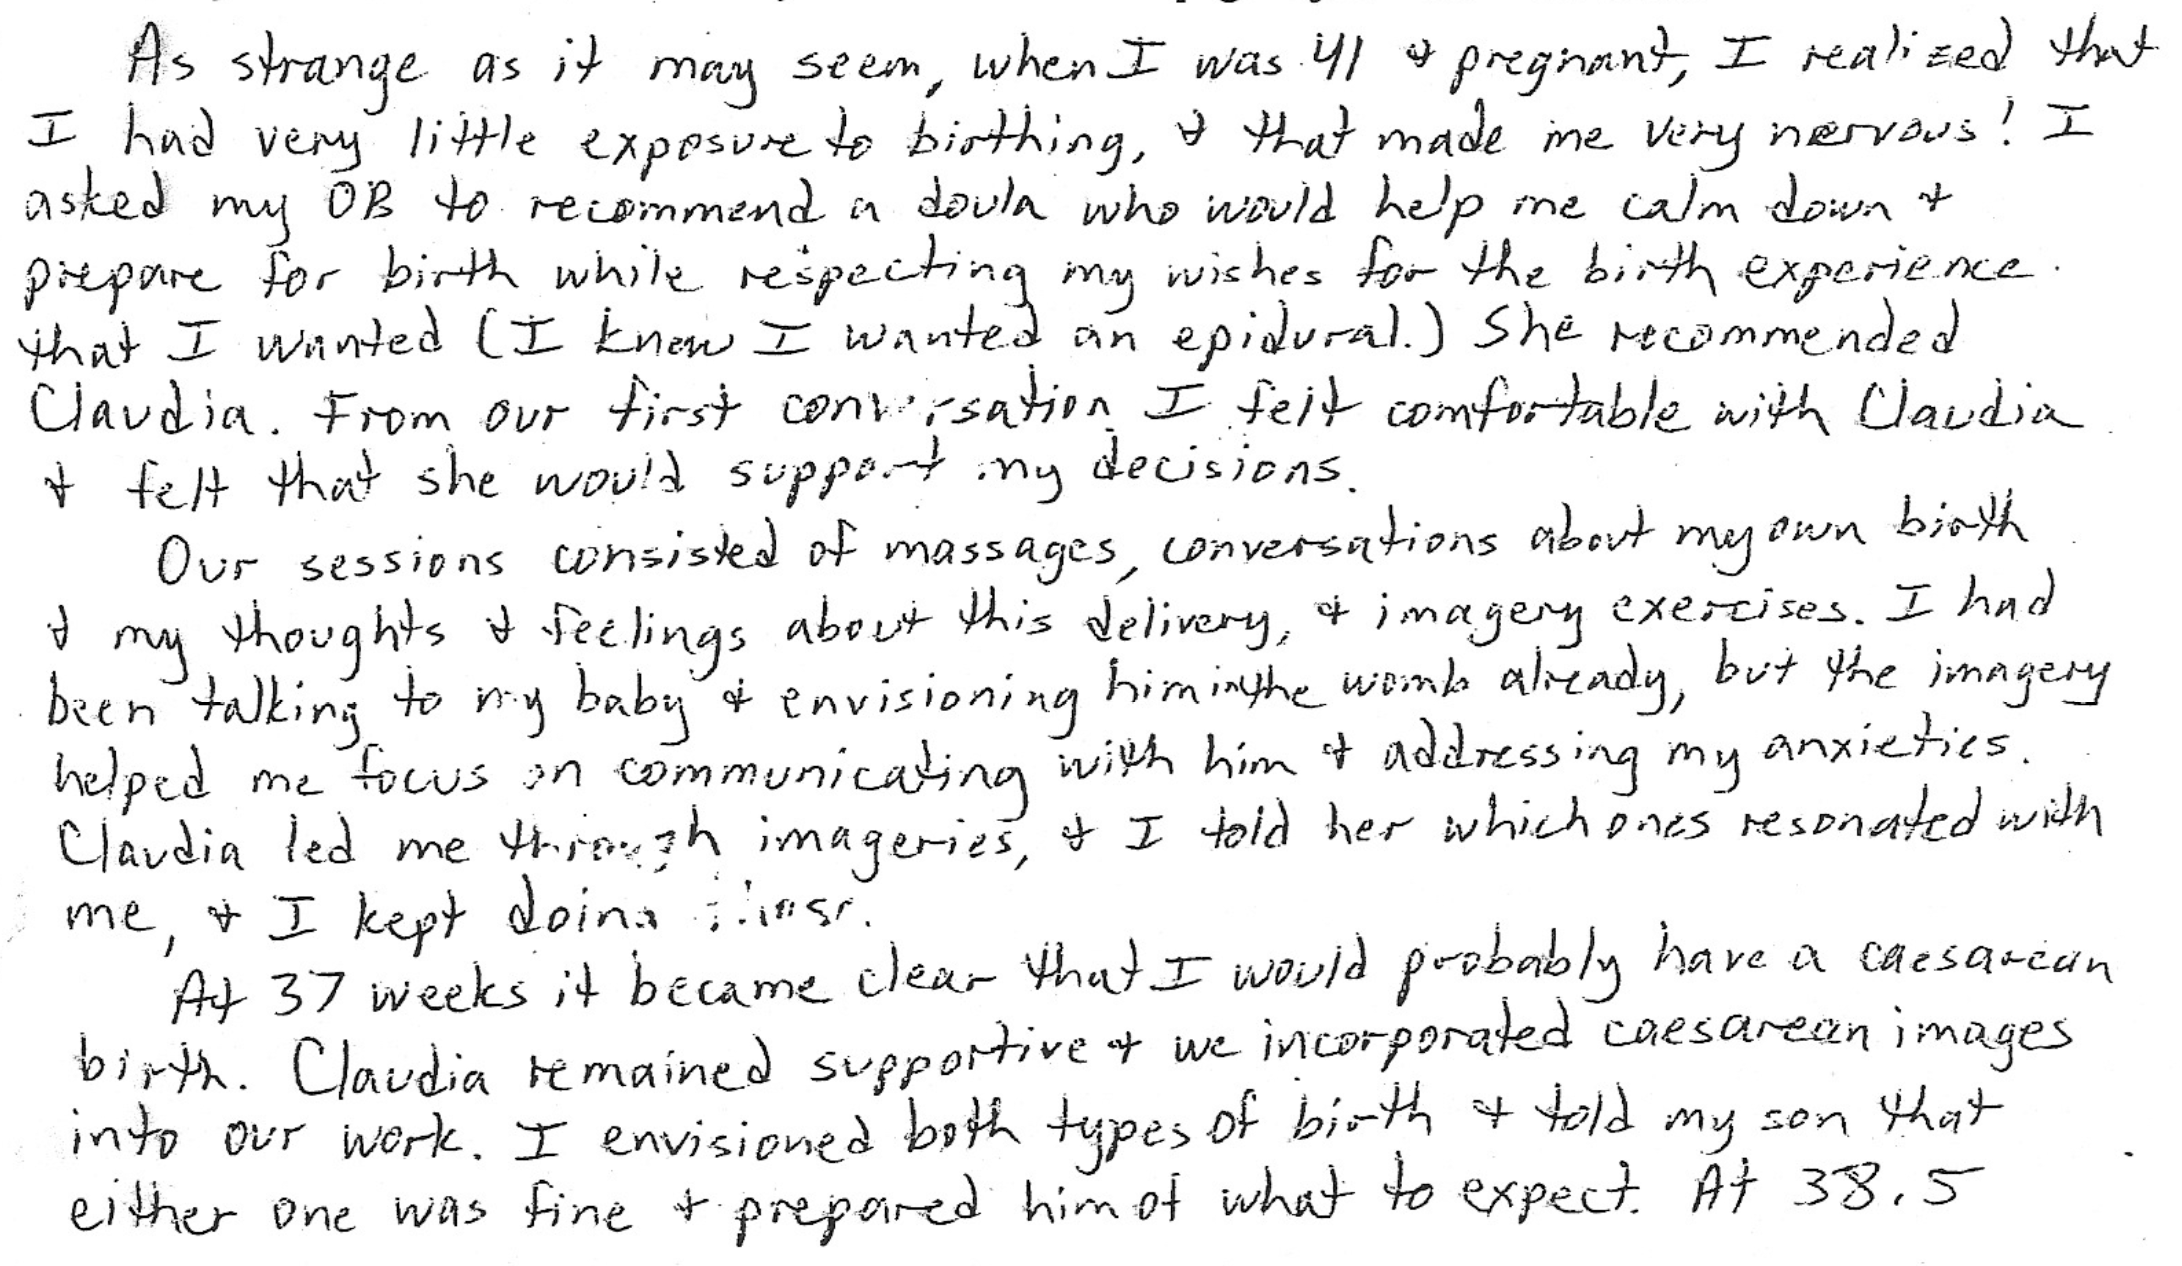 As strange as it may seem, when I was 41 & pregnant, I realized that
I had very little exposure to birthing, & that made me very nervous! I
asked my OB to recommend a doula who would help me calm down &
prepare for birth while respecting my wishes for the birth experience
that I wanted (I knew I wanted an epidural.) She recommended
Claudia. From our first conversation I felt comfortable with Claudia
& felt that she would support my decisions.
Our sessions consisted of massages, conversations about my own birth
& my thoughts & feelings about this delivery, & imagery exercises. I had
been talking to my baby & envisioning him in the womb already, but the imagery
helped me focus on communicating with him & addressing my anxieties.
Claudia led me through imageries, & I told her which ones resonated with
me, & I kept doing
At 37 weeks it became clear that I would probably have a caesarean
birth. Claudia remained supportive & we incorporated caesarean images
into our work. I envisioned both types of birth & told my son that
either one was fine & prepared him of what to expect. At 38.5